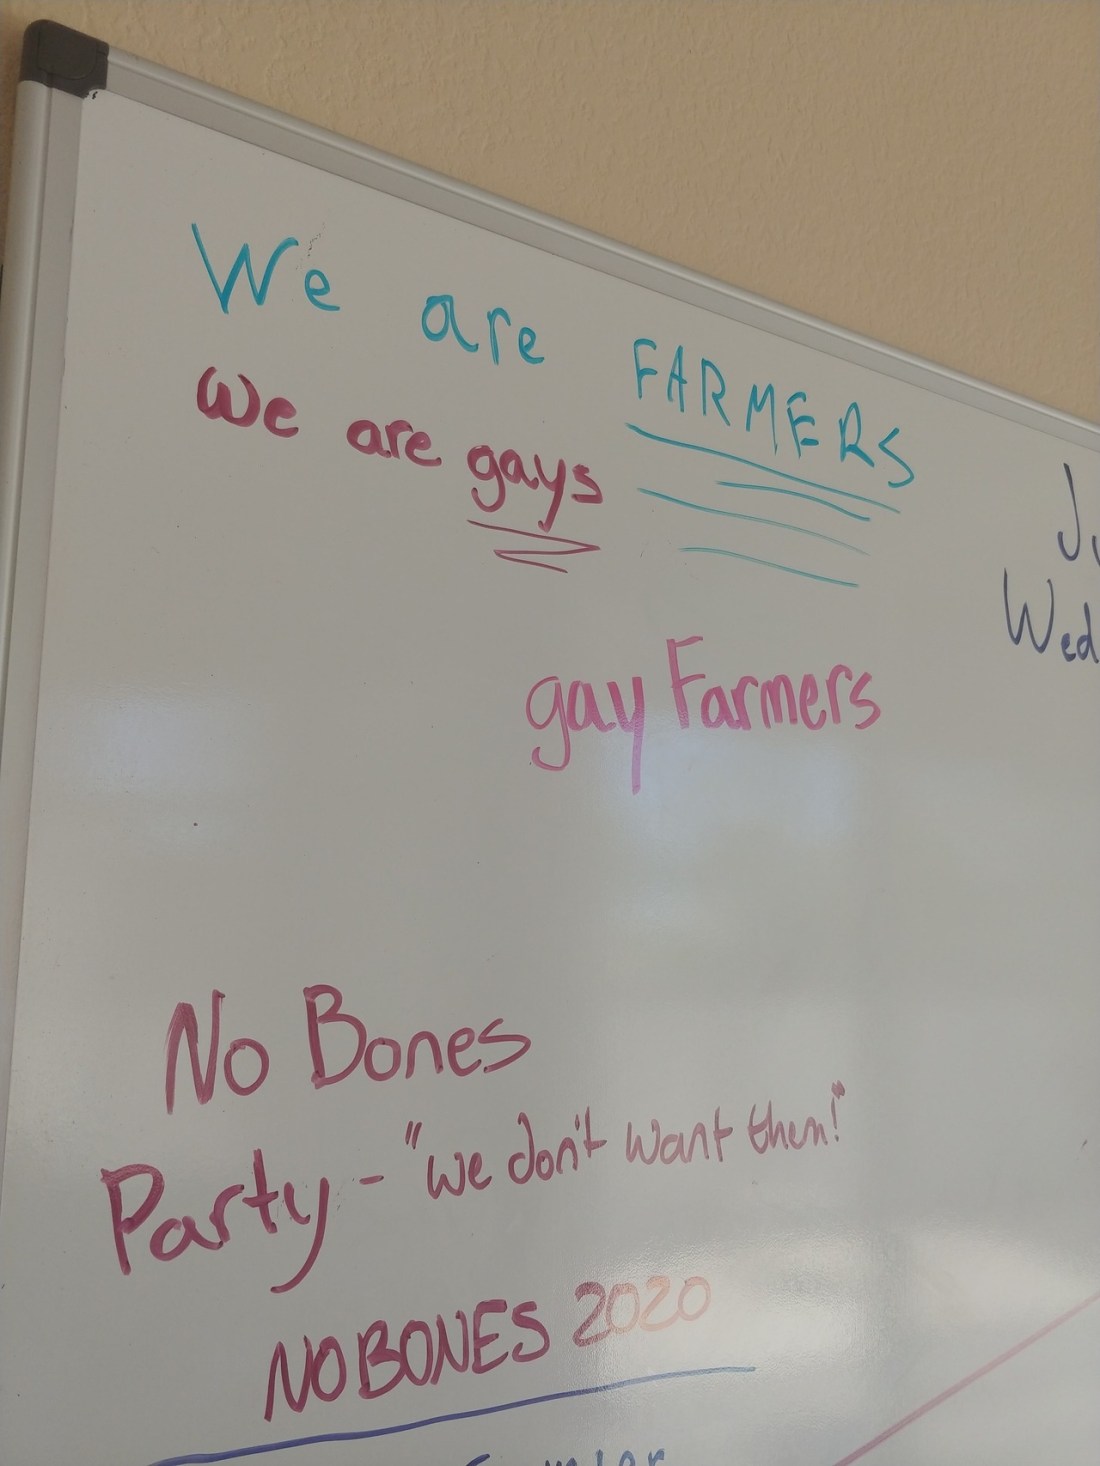 We are FARMERS
We are gays
gay Farmers
Wed
No Bones
Party - "We don't want them!"
NO BONES 2020